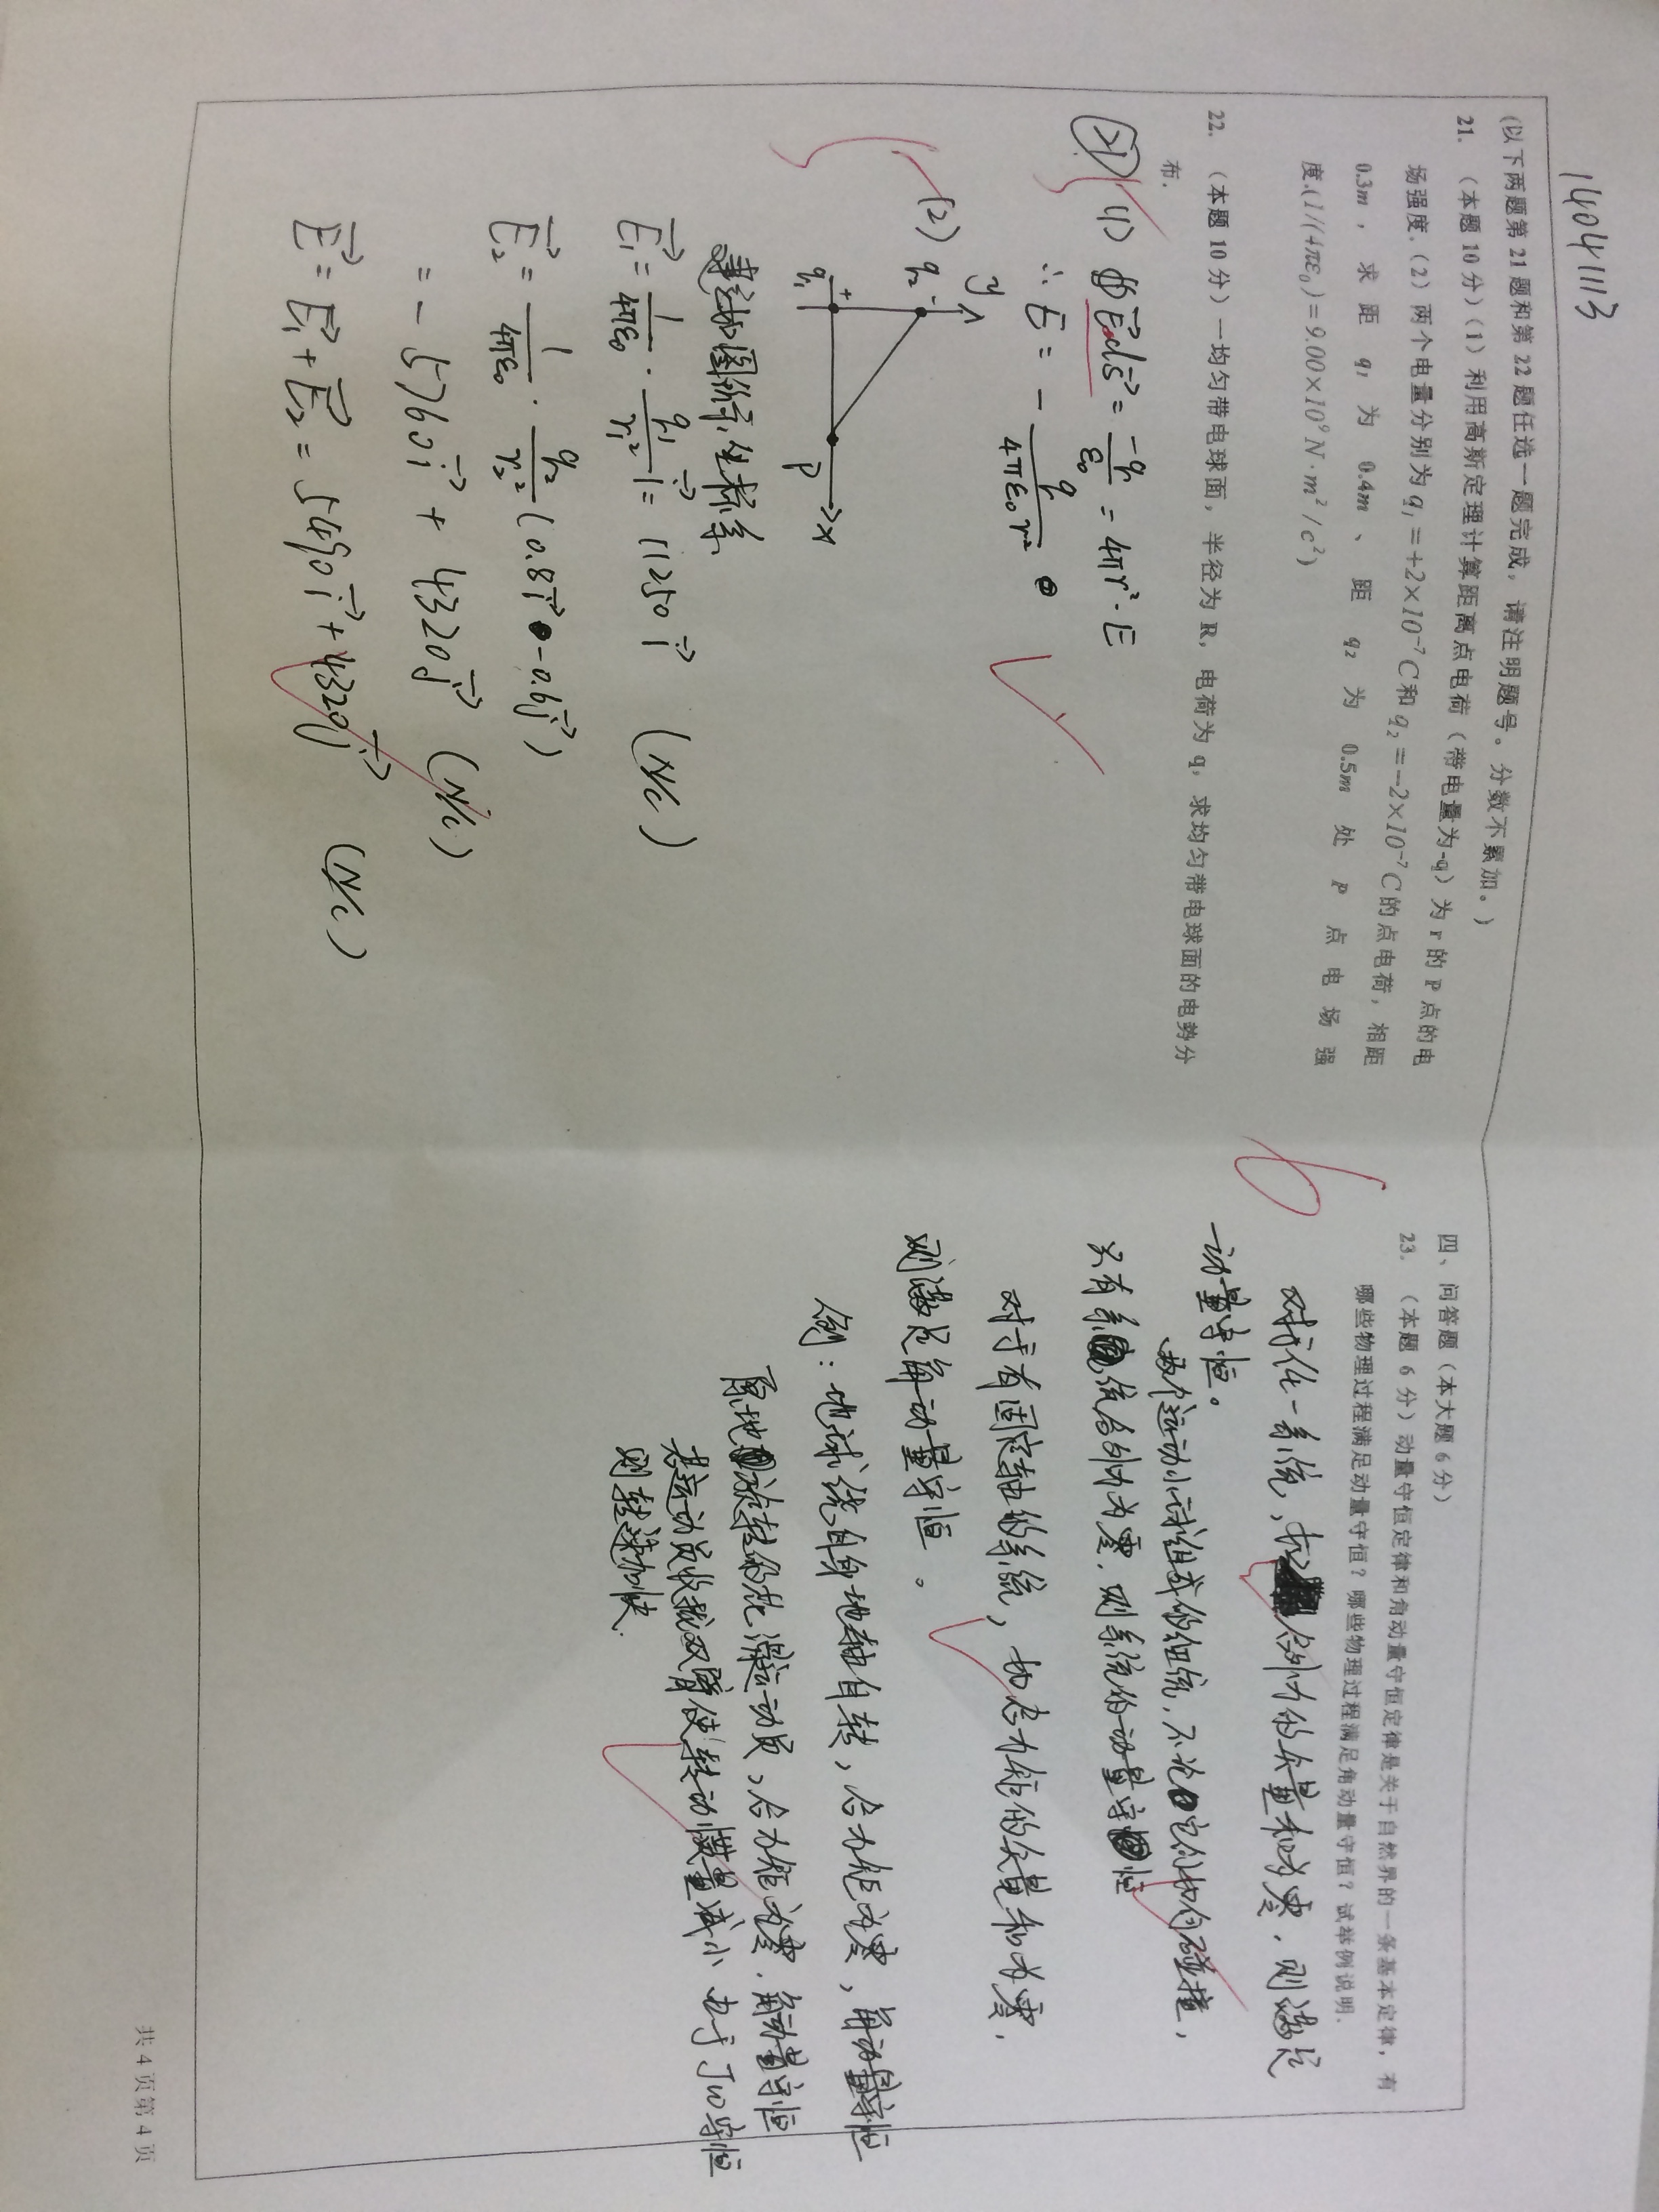 14041113
(以下两题第 21 题和第 22 题任选一题完成，请注明题号。分数不累加。)
21. （本题 10 分）(1) 利用高斯定理计算距离点电荷（带电量为-q）为 r 的 P 点的电
场强度.（2）两个电量分别为 q₁=+2×10⁻⁷C 和 q₂=-2×10⁻⁷C 的点电荷，相距
0.3m，求距 q₁ 为 0.4m、距 q₂ 为 0.5m 处 P 点电场强
度.(1/(4πε₀)=9.00×10⁹N·m²/c²)
22. （本题 10 分）一均匀带电球面，半径为 R，电荷为 q，求均匀带电球面的电势分
布.
21 (1) ∯E⃗·ds⃗ = -q/ε₀ = 4πr²·E
∴ E = - q/4πε₀r²
(2)
y
q₂ -
q₁ +
P
x
建立如图所示坐标系
E⃗₁ = 1/4πε₀ · q₁/r₁² i⃗ = 11250 i⃗ (N/C)
E⃗₂ = 1/4πε₀ · q₂/r₂² (0.8i⃗ - 0.6j⃗)
= -5760i⃗ + 4320j⃗ (N/C)
E⃗ = E⃗₁ + E⃗₂ = 5490i⃗ + 4320j⃗ (N/C)
6
四、问答题（本大题 6 分）
23. （本题 6 分）动量守恒定律和角动量守恒定律是关于自然界的一条基本定律，有
哪些物理过程满足动量守恒？哪些物理过程满足角动量守恒？试举例说明.
对于任一系统，合外力的矢量和为零，则满足
动量守恒。
两个运动小球组成的系统，不论它们如何碰撞，
只有系统合外力为零，则系统的动量守恒
对于有固定轴的系统，如合力矩的矢量和为零，
则满足角动量守恒。
例：地球绕自身地轴自转，合力矩为零，角动量守恒
原地旋转的花滑运动员，合力矩为零，角动量守恒
若运动员收拢双臂使转动惯量减小 由于Jω守恒
则转速加快.
共 4 页第 4 页